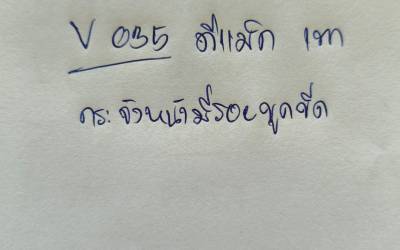 V 035 ดีแม็ค เทา
กระจังหน้ามีรอยขูดขีด